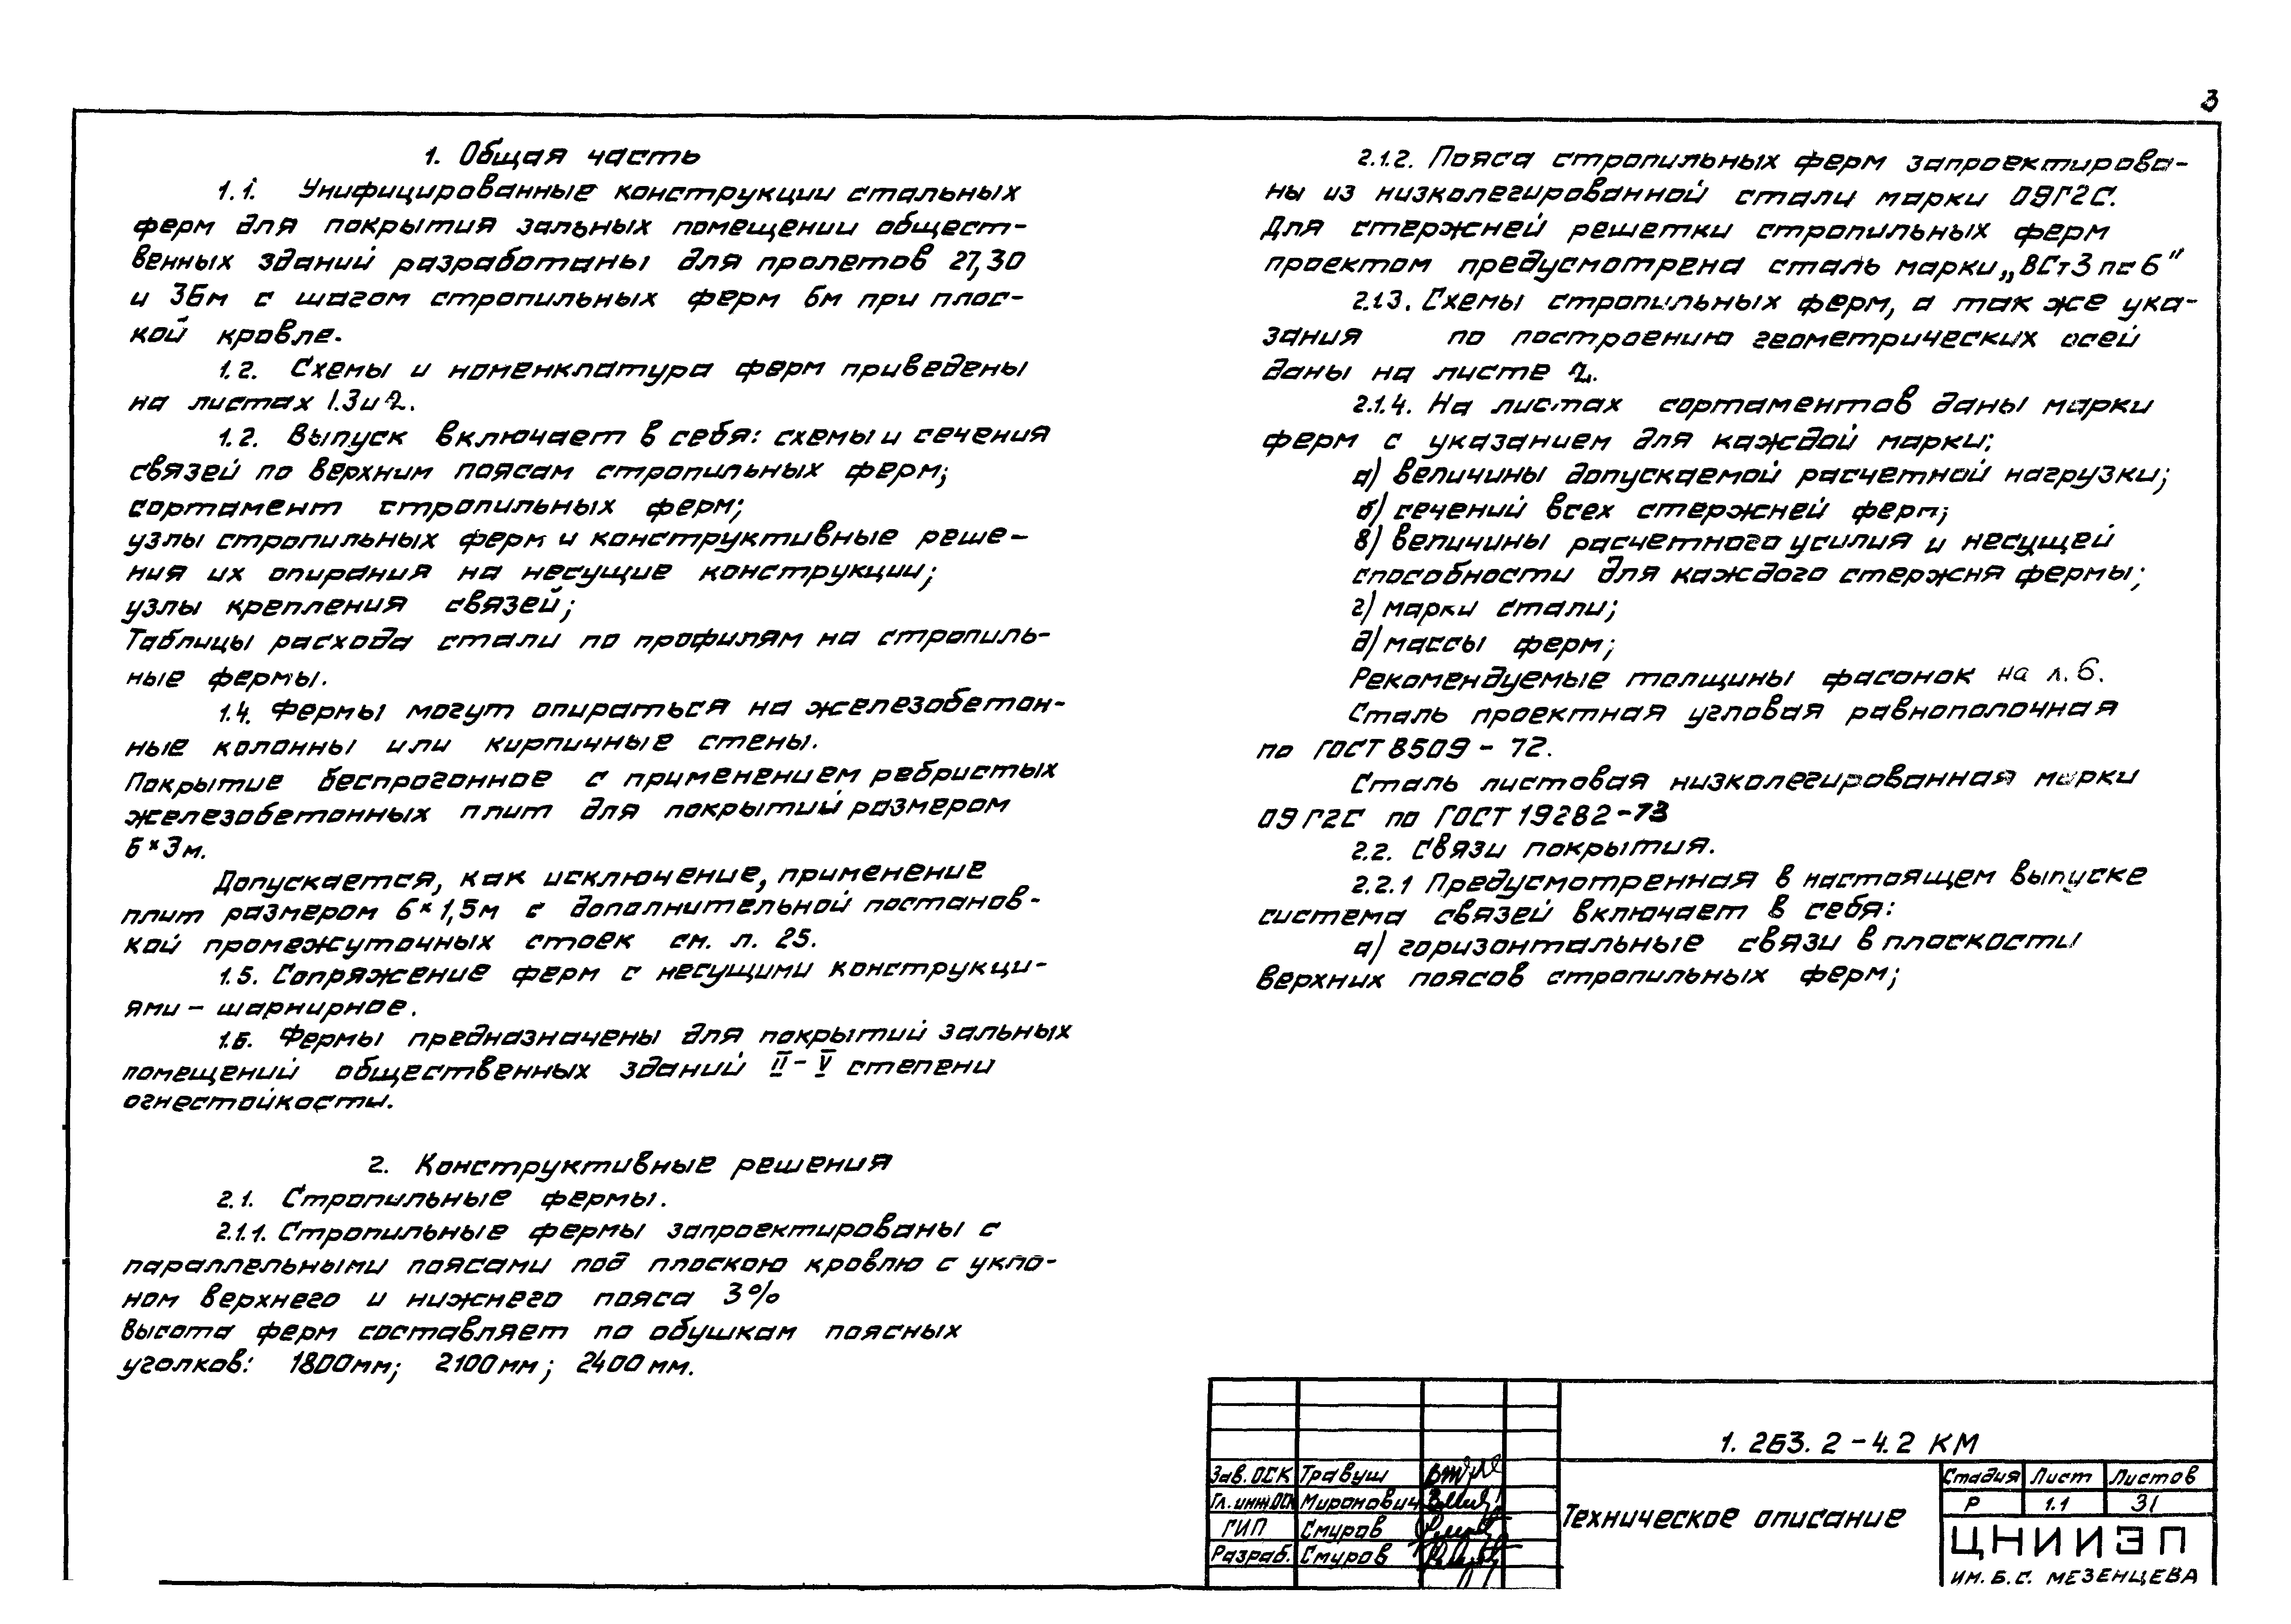 3
1. Общая часть
1.1. Унифицированные конструкции стальных
ферм для покрытия зальных помещении общест-
венных зданий разработаны для пролетов 27,30
и 36м с шагом стропильных ферм 6м при плос-
кой кровле.
1.2. Схемы и номенклатура ферм приведены
на листах 1.3и2.
1.2. Выпуск включает в себя: схемы и сечения
связей по верхним поясам стропильных ферм;
сортамент стропильных ферм;
узлы стропильных ферм и конструктивные реше-
ния их опирания на несущие конструкции;
узлы крепления связей;
Таблицы расхода стали по профилям на стропиль-
ные фермы.
1.4. Фермы могут опираться на железобетон-
ные колонны или кирпичные стены.
Покрытие беспрогонное с применением ребристых
железобетонных плит для покрытий размером
6×3м.
Допускается, как исключение, применение
плит размером 6×1,5м с дополнительной постанов-
кой промежуточных стоек см. л. 25.
1.5. Сопряжение ферм с несущими конструкци-
ями - шарнирное.
1.6. Фермы предназначены для покрытий зальных
помещений общественных зданий II - V степени
огнестойкости.
2. Конструктивные решения
2.1. Стропильные фермы.
2.1.1. Стропильные фермы запроектированы с
параллельными поясами под плоскою кровлю с укло-
ном верхнего и нижнего пояса 3%
Высота ферм составляет по обушкам поясных
уголков: 1800мм; 2100мм; 2400мм.
2.1.2. Пояса стропильных ферм запроектирова-
ны из низколегированной стали марки 09Г2С.
Для стержней решетки стропильных ферм
проектом предусмотрена сталь марки „ВСт3пс6"
2.1.3. Схемы стропильных ферм, а так же ука-
зания по построению геометрических осей
даны на листе 2.
2.1.4. На листах сортаментов даны марки
ферм с указанием для каждой марки:
а) величины допускаемой расчетной нагрузки;
б) сечений всех стержней ферм;
в) величины расчетного усилия и несущей
способности для каждого стержня фермы;
г) марки стали;
д) массы ферм;
Рекомендуемые толщины фасонок на л. 6.
Сталь проектная угловая равнополочная
по ГОСТ 8509 - 72.
Сталь листовая низколегированная марки
09Г2С по ГОСТ 19282-73
2.2. Связи покрытия.
2.2.1 Предусмотренная в настоящем выпуске
система связей включает в себя:
а) горизонтальные связи в плоскости
верхних поясов стропильных ферм;
1. 263. 2 - 4.2 КМ
Зав. ОСК Травуш
Гл. инж. ОСК Миронович
ГИП Смуров
Разраб. Смуров
Техническое описание
Стадия Лист Листов
Р 1.1 31
ЦНИИЭП
ИМ. Б.С. МЕЗЕНЦЕВА